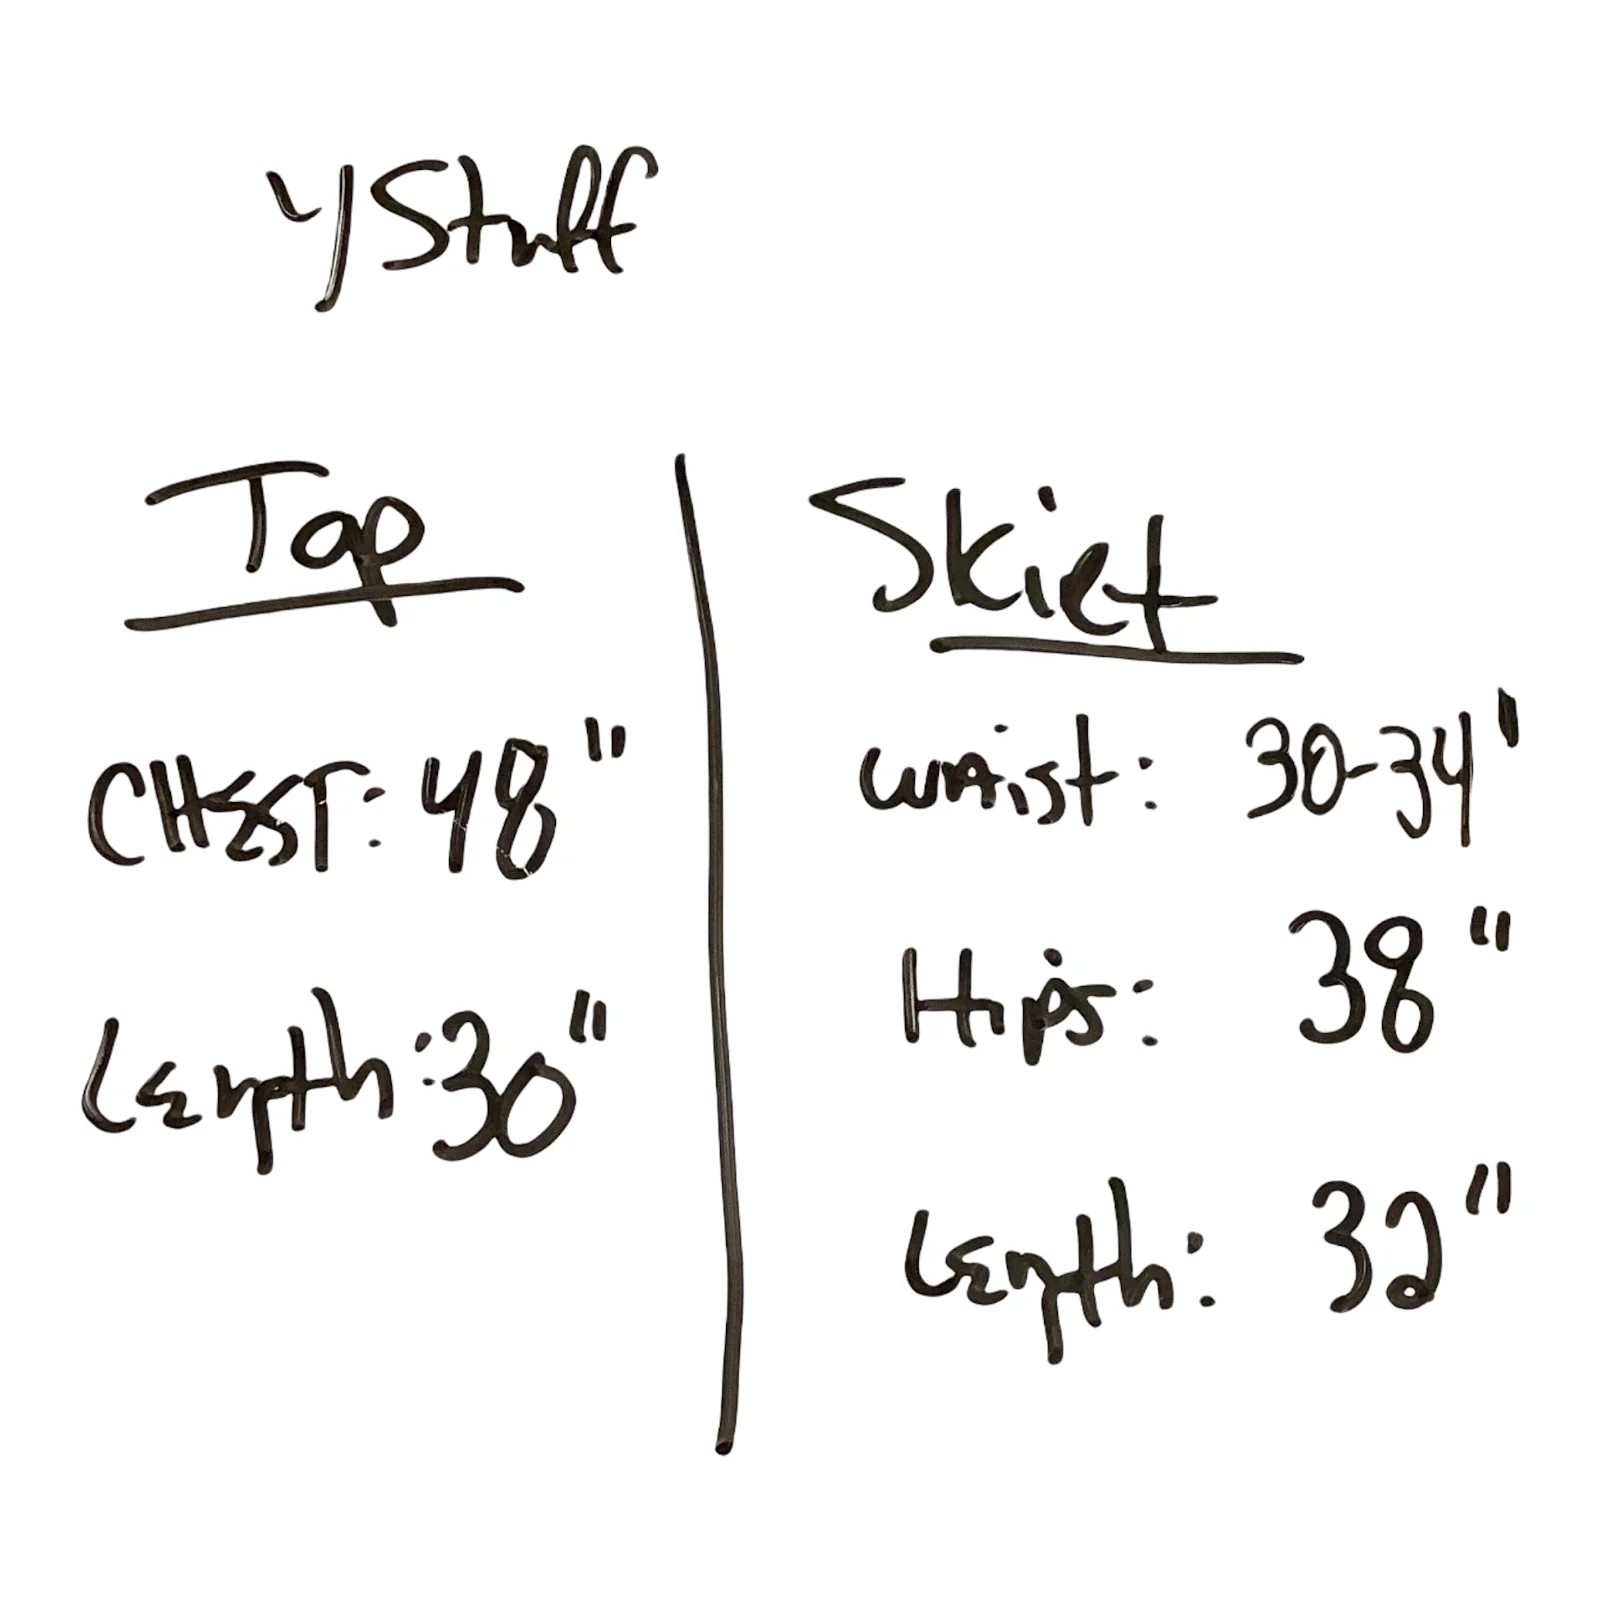 y Stuff
Top
CHEST: 48"
Length: 30"
Skirt
Waist: 30-34"
Hips: 38"
Length: 32"